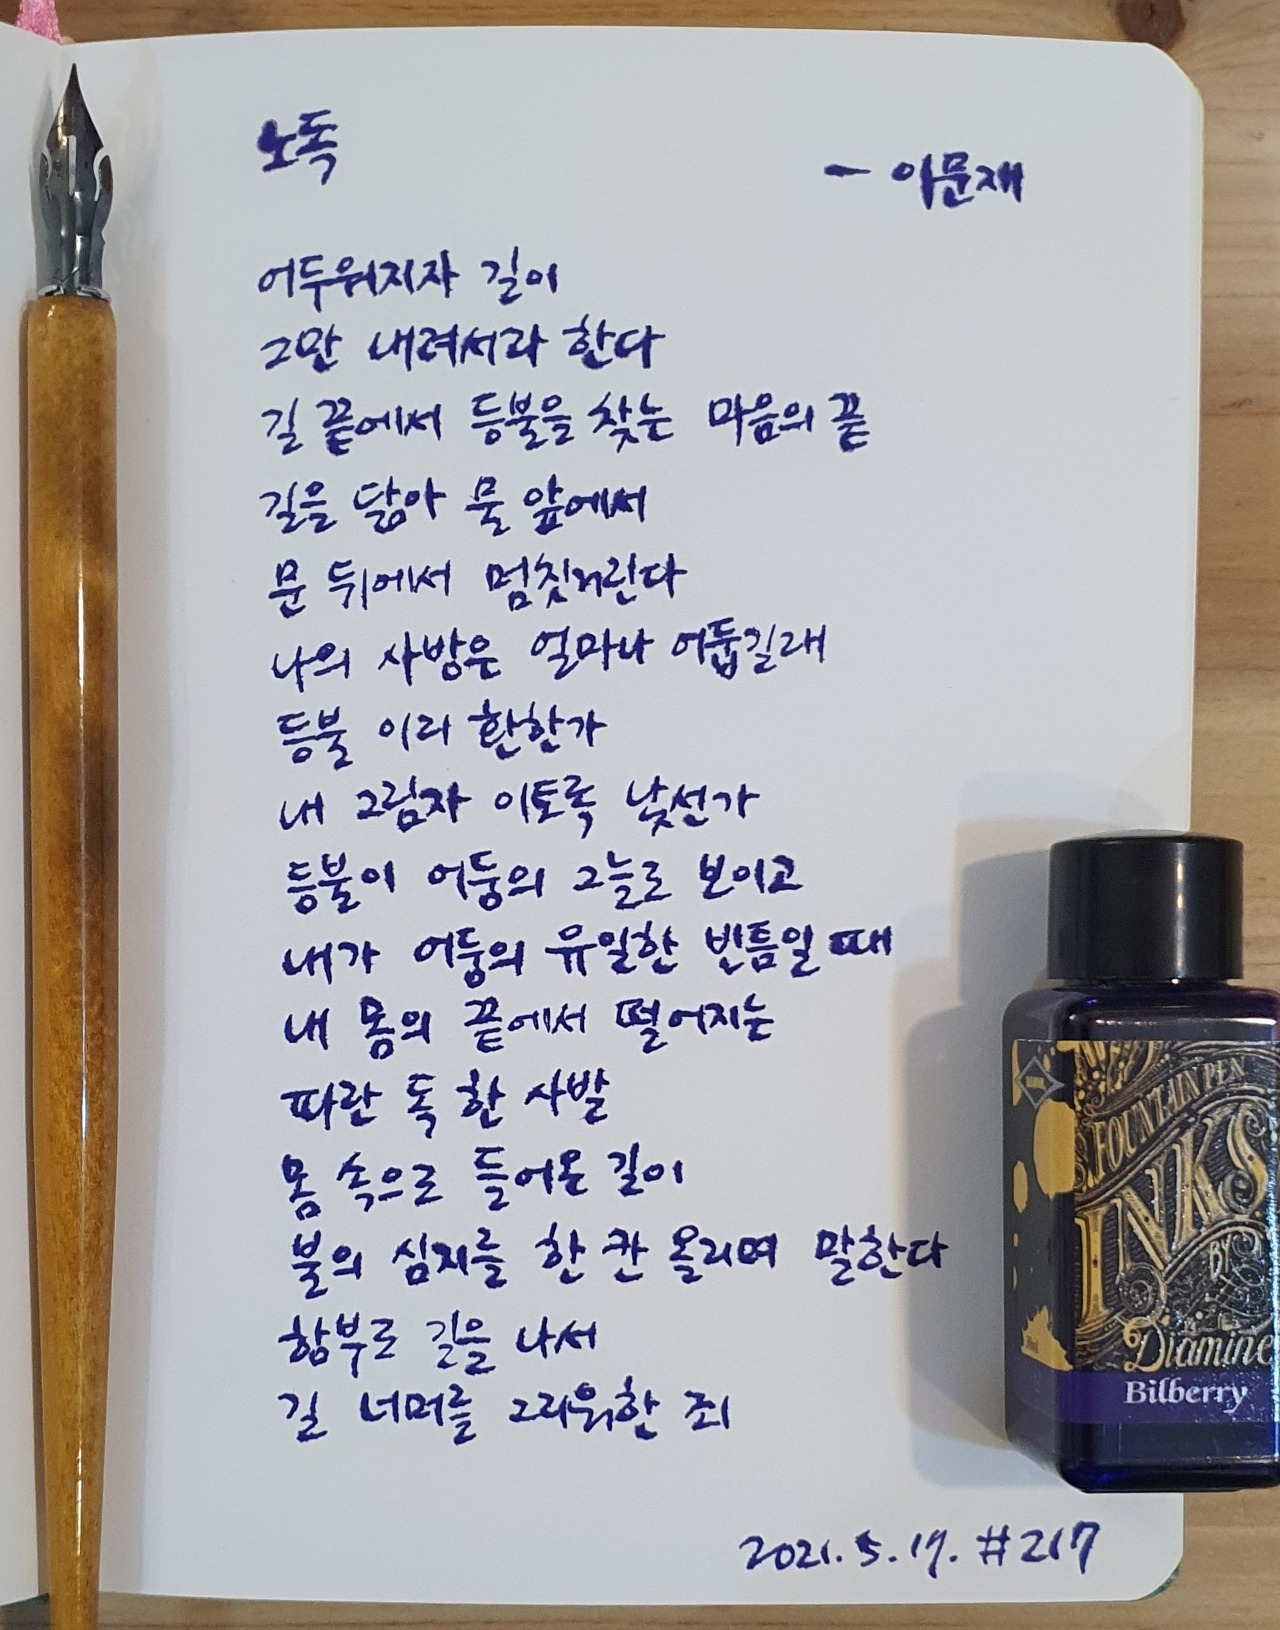 노독
- 이문재
어두워지자 길이
그만 내려서라 한다
길 끝에서 등불을 찾는 마음의 끝
길을 닮아 물 앞에서
문 뒤에서 멈칫거린다
나의 사방은 얼마나 어둡길래
등불 이리 환한가
내 그림자 이토록 낯선가
등불이 어둠의 그늘로 보이고
내가 어둠의 유일한 빈틈일 때
내 몸의 끝에서 떨어지는
파란 독 한 사발
몸 속으로 들어온 길이
불의 심지를 한 칸 올리며 말한다
함부로 길을 나서
길 너머를 그리워한 죄
2021. 5. 17. #217
FOUNTAIN PEN
INKS
BY
Diamine
Bilberry